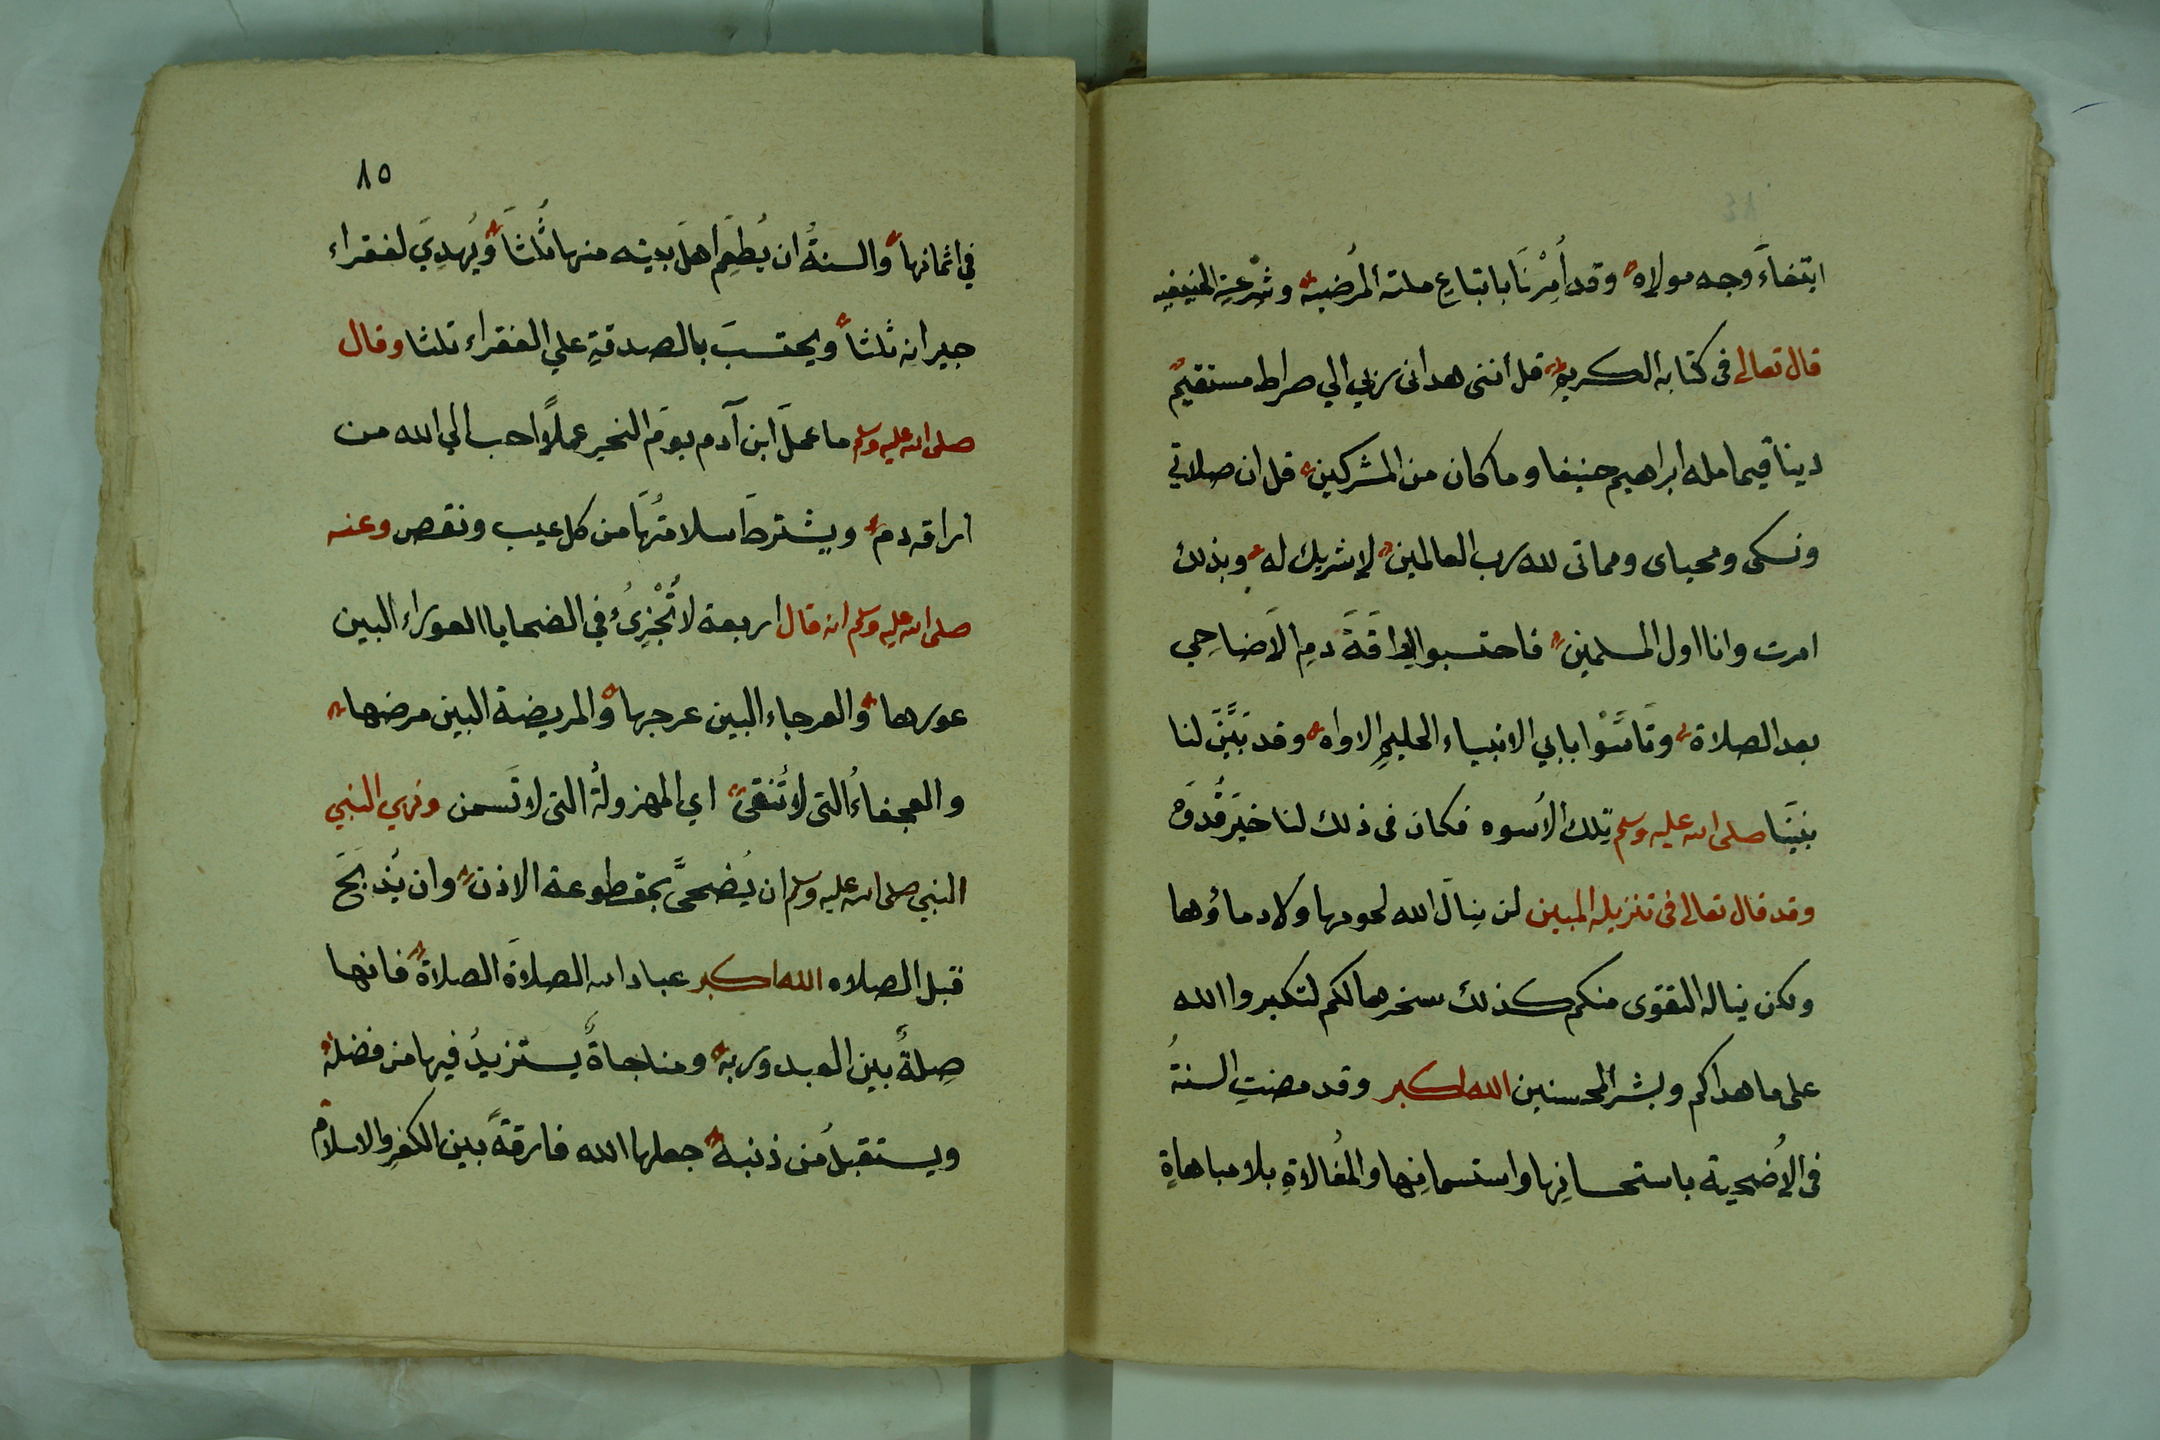 ابتغاءَ وجه مولاه وقد أُمِرْنَا باتباعِ ملته المُرضية وشِرْعتِه الحنيفيه
قال تعالى فى كتابه الكريم قل أننى هدانى ربي الي صراط مستقيم
دينا قيما مله ابراهيم حنيفا وما كان من المشركين قل ان صلاتي
ونسكى ومحياى ومماتى لله رب العالمين لا شريك له وبذلك
امرت وانا اول المسلمين فاحتسبوا اراقَةَ دمِ الاَضاحِي
بعد الصلاة وتَاسَّوْا بابي الانبياء الحليمِ الاواه وقد بَيَّنَ لنا
نبيَنا صلى الله عليه وسلم تِلك الأُسوه فكان فى ذلك لنا خيرَ قُدوَه
وقد قال تعالى فى تنزيله المبين لن ينالَ الله لحومها ولا دماؤها
ولكن يناله التقوى منكم كذلك سخرها لكم لتكبروا الله
على ما هداكم وبشر المحسنين الله اكبر وقد مضتِ السنةُ
فى الاُضحية باستحسانِها واستسمانِها والمُغالاةِ بلا مباهاةٍ
٨٥
في اثمانها والسنةُ ان يُطعِمَ اهلَ بيته منها ثُلُثاً ويُهدِيَ لفقراء
جيرانِه ثلثاً ويحتسبَ بالصدقةِ علي الفقراء ثلثا وقال
صلى الله عليه وسلم ما عملَ ابن آدم يومَ النحر عملاً احب الي الله من
اراقه دم ويشترطَ سلامتُهَا من كل عيب ونقص وعنه
صلى الله عليه وسلم انه قال اربعة لا تُجْزِئُ في الضحايا العوراء البين
عورها والعرجاء البين عرجها والمريضة البين مرضها
والعجفاءُ التى لا تُنْقىِ اي المهزولةُ التى لا تَسمن ونهي النبي
النبي صلى الله عليه وسلم ان يُضحىَّ بمقطوعة الاذن وان يُذبَحَ
قبل الصلاه الله اكبر عباد الله الصلاةَ الصلاةَ فانها
صِلةٌ بين العبد وربه ومناجاةٌ يستزيدُ فيها من فضله
ويستقيلُ من ذنبه جعلها الله فارقةً بين الكفرِ والاسلام